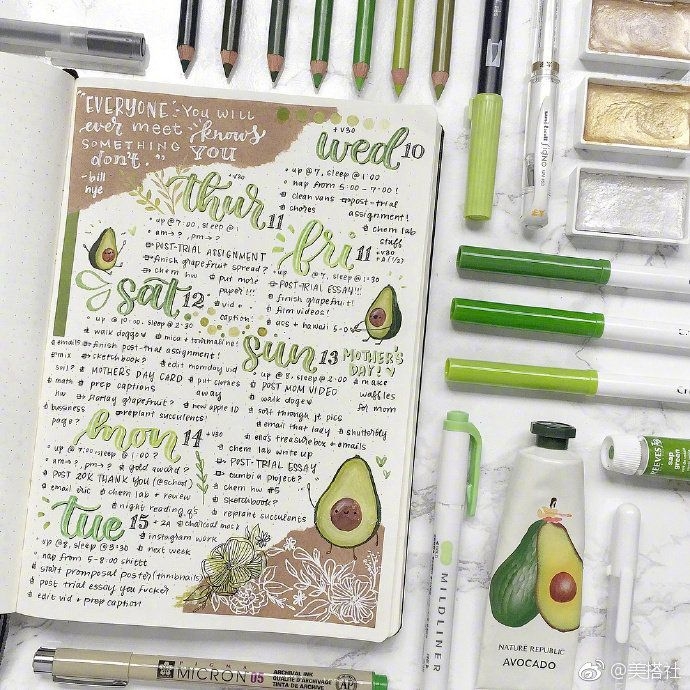 "EVERYONE YOU WILL
ever meet knows
SOMETHING YOU
don't."
- bill
nye
+V30
wed 10
° up @ 7, sleep @ 1:00
° nap from 5:00 - 7:00!
clean vans
post-trial
assignment!
chores
chem lab
stuff
+V30
thur 11
° up @ 7:00, sleep @
° am→?, pm→?
POST-TRIAL ASSIGNMENT
finish grapefruit spread?
chem hw
put more
paper!!!
fri 11
+V30
° up @ 7, sleep @ 1:30
POST-TRIAL ESSAY!!!
finish grapefruit!
film videos!
sat 12
vid +
caption!
° up @ 10:00, sleep @ 2:30
walk doggo
mica + tourmaline!
emails
finish post-trial assignment!
mix
sketchbook?
edit momday vid
MOTHERS DAY CARD
put clothes
away
math
hw
prep captions
startay grapefruit?
new apple ID
bussiness
page?
replant succulents!
sun 13
MOTHER'S
DAY!
° up @ 8, sleep @ 2:00
make
waffles
for mom
POST MOM VIDEO
walk doge
sort through pt pics
email that lady
shutterfly
ena's treasurebox + emails
chem lab write up
POST-TRIAL ESSAY
zumbia project?
chem hw #5
sketchbook?
replant succulents
mon 14
+V30
° up @ 7:00, sleep @ 1:00?
° am→?, pm→?
gold award?
POST 20K THANK YOU (@school)
email eric
chem lab + review
night reading q's
tue 15
+2A
charcoal mask
instagram work
next week
° up @ 8, sleep @ 3:30
° nap from 5-8:00
start promposal poster (thmbnails)
post trial essay you fucker
edit vid + prep caption
MILDLINER
NATURE REPUBLIC
AVOCADO
REEVES
sap
green
uni-ball
SIGNO
PIGMA
MICRON 05
ARCHIVAL INK
QUALITE D'ARCHIVAGE
TINTA DE ARCHIVE
AP
@美搭社